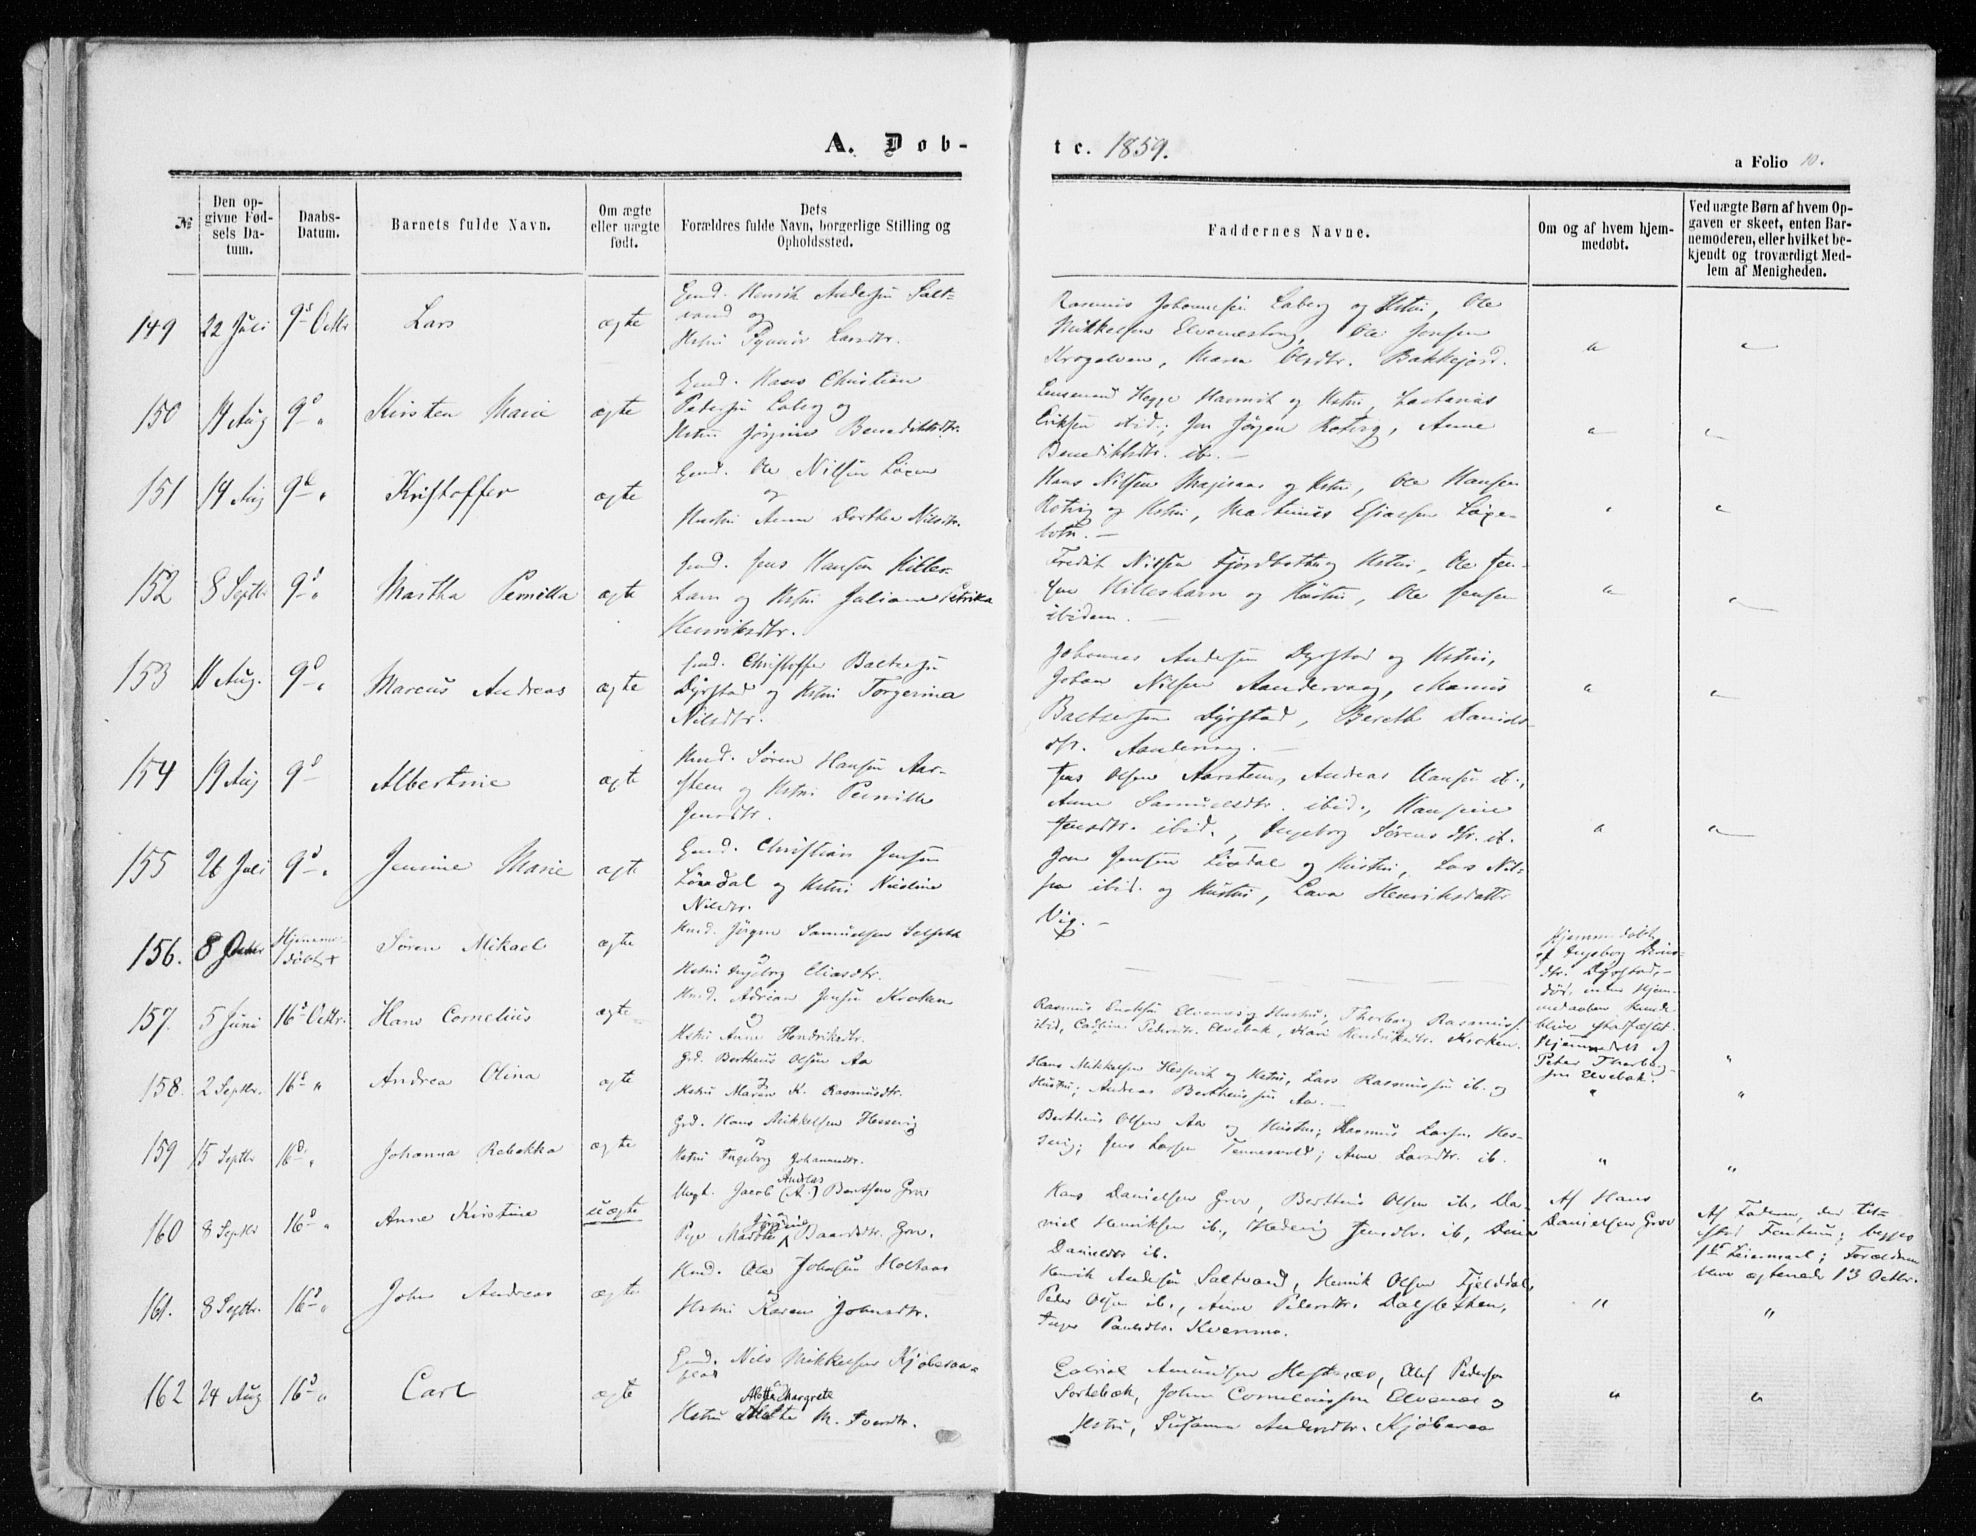 A. Døb-
te. 1859.
a Folio 10.
№
Den op-
givne Fød-
sels Da-
tum.
Daabs-
Datum.
Barnets fulde Navn.
Om ægte
eller uægte
født.
Dets
Forældres fulde Navn, borgerlige Stilling og
Opholdssted.
Faddernes Navne.
Om og af hvem hjem-
medøbt.
Ved uægte Børn af hvem Op-
gaven er skeet, enten Bar-
nemoderen, eller hvilket be-
kjendt og troværdigt Med-
lem af Menigheden.
149 22 Juli 9d Octbr Lars ægte
Henrik Andersen Salt-
vand og
Hstrü Larsdtr.
Rasmus Johannesen Laberg og Hstrü, Ole
Mikkelsen Ole Jensen
Krogelven, Maren Olsdtr. Bakkejord.
150 14 Aug 9d " Kirsten Marie ægte
Hans Christian
Pedersen Laberg og
Hstrü Jørgine Benediktsdtr.
Lensmand Hegge Havnvik og Hstrü, Zacharias
Eriksen ibid; Jørgen Rotvig, Anne
Benediktsdtr. ib. -
151 14 Aug 9d " Kristoffer ægte
Ole Nilsen
og
Hustrü Anne Dorthea Nilsdtr.
Hans Nilsen og Hstrü, Ole Hansen
Rotvig og Hstrü, Martinus Esiassen
152 8 Septbr 9d " Martha Pernilla ægte
Jens Hansen Hilles-
ham og Hstrü Juliane Petrika
Henriksdtr.
Fredrik Nilsen Fjordbotn og Hstrü, Ole Jen-
sen Hillesham og Hüstrü, Ole Jensen
ibidem.
153 11 Aug. 9d " Marcus Andreas ægte
Christoffer Baltzersen
Dyrstad og Hstrü Torgerina
Nilsdtr.
Johannes Andersen Dyrstad og Hstrü,
Johan Nilsen Aandervaag, Marius
Baltzersen Dyrstad, Bereth Daniels-
dtr. Aandervaag.
154 19 Aug 9d Albertine ægte
Søren Hansen Aar-
steen og Hstrü Pernille
Jensdtr.
Jens Olsen Aarsteen, Andreas Hansen ib.,
Anne Samuelsdtr. ibid., Hansine
Jensdtr. ibid., Ingeborg Sørensdtr. ib.
155 26 Juli 9d " Jensine Marie ægte
Christian Jensen
og Hstrü Nicoline
Nilsdtr.
Jon Jensen og Hustrü, Lars Nil-
sen ibid. og Hustrü, Lava Henriksdatter
Vig. -
156. 8 Octbr Hjemme-
døbt + Søren Mikael ægte
Jørgen Samuelsen Selseth
og
Hstrü Ingeborg Eliasdtr.
Hjemmedøbt
af Ingeborg
Dyrstad, -
død, inden Hjem-
medaaben kunde
blive stadfæstet.
157. 5 Juni 16d Octbr. Hans Cornelius ægte
Adrian Jensen Kroken
og
Hstrü Anne Hendriksdtr.
Rasmus Elvenes og Hustrü, Thorborg Rasmusd.
ibid, Pedersdtr. Elvebak, Hendriksdtr. Kroken.
Hjemmedøbt af
Peter Thorberg-
sen Elvebak.
"
158. 2 Septbr. 16d " Andrea Olina ægte
Grd. Bertheus Olsen Aa
og
Hstrü Maren K. Rasmusdtr.
Hans Mikkelsen Hessevik og Hstrü, Lars Rasmussen ib. og
Hustrü; Andreas Bertheussen Aa. -
" "
159 15 Septbr 16d " Johanna Rebekka ægte
Grd. Hans Mikkelsen Hessevig
og
Hstrü Ingeborg Johannesdtr.
Bertheus Olsen Aa og Hustrü; Rasmus Larsen Hes-
sevig; Jens Larsen Tennevold; Anne Larsdtr. ib.
" "
160 8 Septbr 16d " Anne Kirstine uægte
Andreas
Ungk. Jacob (A.) Berthsen Grov
og
Jørgine
Pige Marthe Baardsdtr. Grov.
Hans Danielsen Grov, Bertheus Olsen ib. Da-
niel Henriksen ib., Hedevig Jensdtr. ib, Dina
Danielsdtr ib.
Af Hans
Danielsen Grov
Af Faderen, der til-
stod begges
1ste Leiermaal; Forældrene
blive ægteviede 13 Octbr.
161. 8 Septbr. 16d " John Andreas ægte
Ole Johnsen Holtaas
og
Hstrü Karen Johnsdtr.
Henrik Andersen Saltvand, Henrik Olsen Fjelddal,
Peder Olsen ib., Anne Pedersdtr.
Inger Paulsdtr. Kvernmo.
" "
162 24 Aug 16d " Carl ægte
Nils Mikkelsen Kjøbsvan-
glad
og
Alette Margrete
Hstrü Alette M. Iversdtr.
Gabriel Amundsen Hestnæs, Olef Pedersen
Sortebak, Johan Corneliussen Elvenæs og
Hstrü, Susanna Andersdtr.
" "